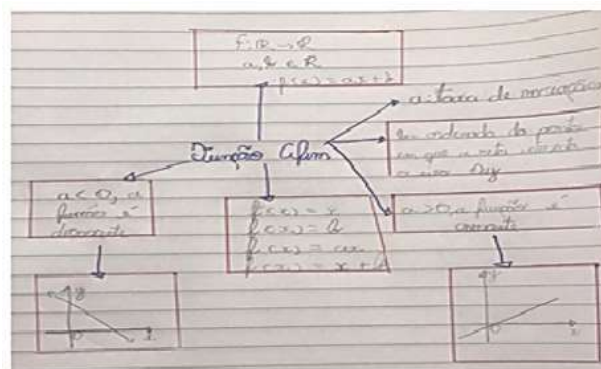 f: R → R
a, b ∈ R
f(x) = ax + b
a: taxa de variação
b: ordenada do ponto
em que a reta corta
o eixo Oy
Função Afim
a < 0, a
função é
decrescente
f(x) = x
f(x) = b
f(x) = ax
f(x) = x + b
a > 0, a função é
crescente
y
0
x
y
0
x